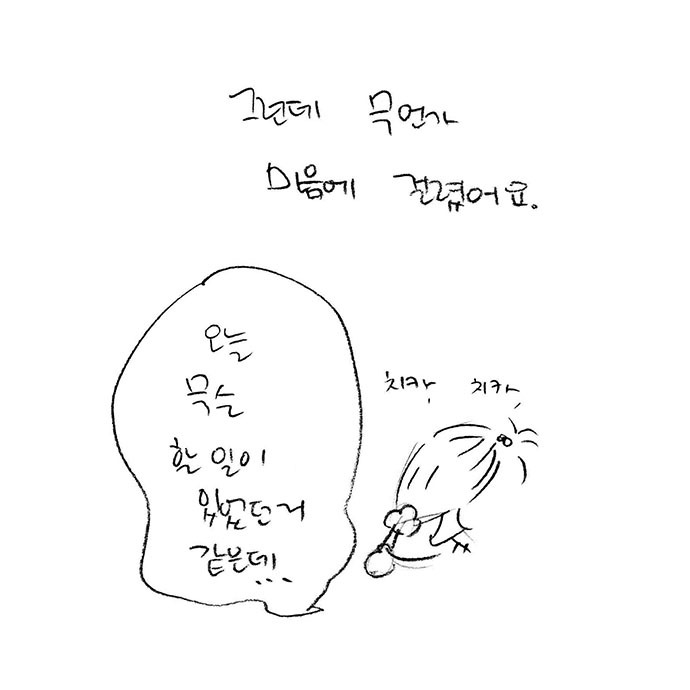 그런데 무언가
마음에 걸렸어요.
오늘
무슨
할 일이
있었던거
같은데...
치카 치카